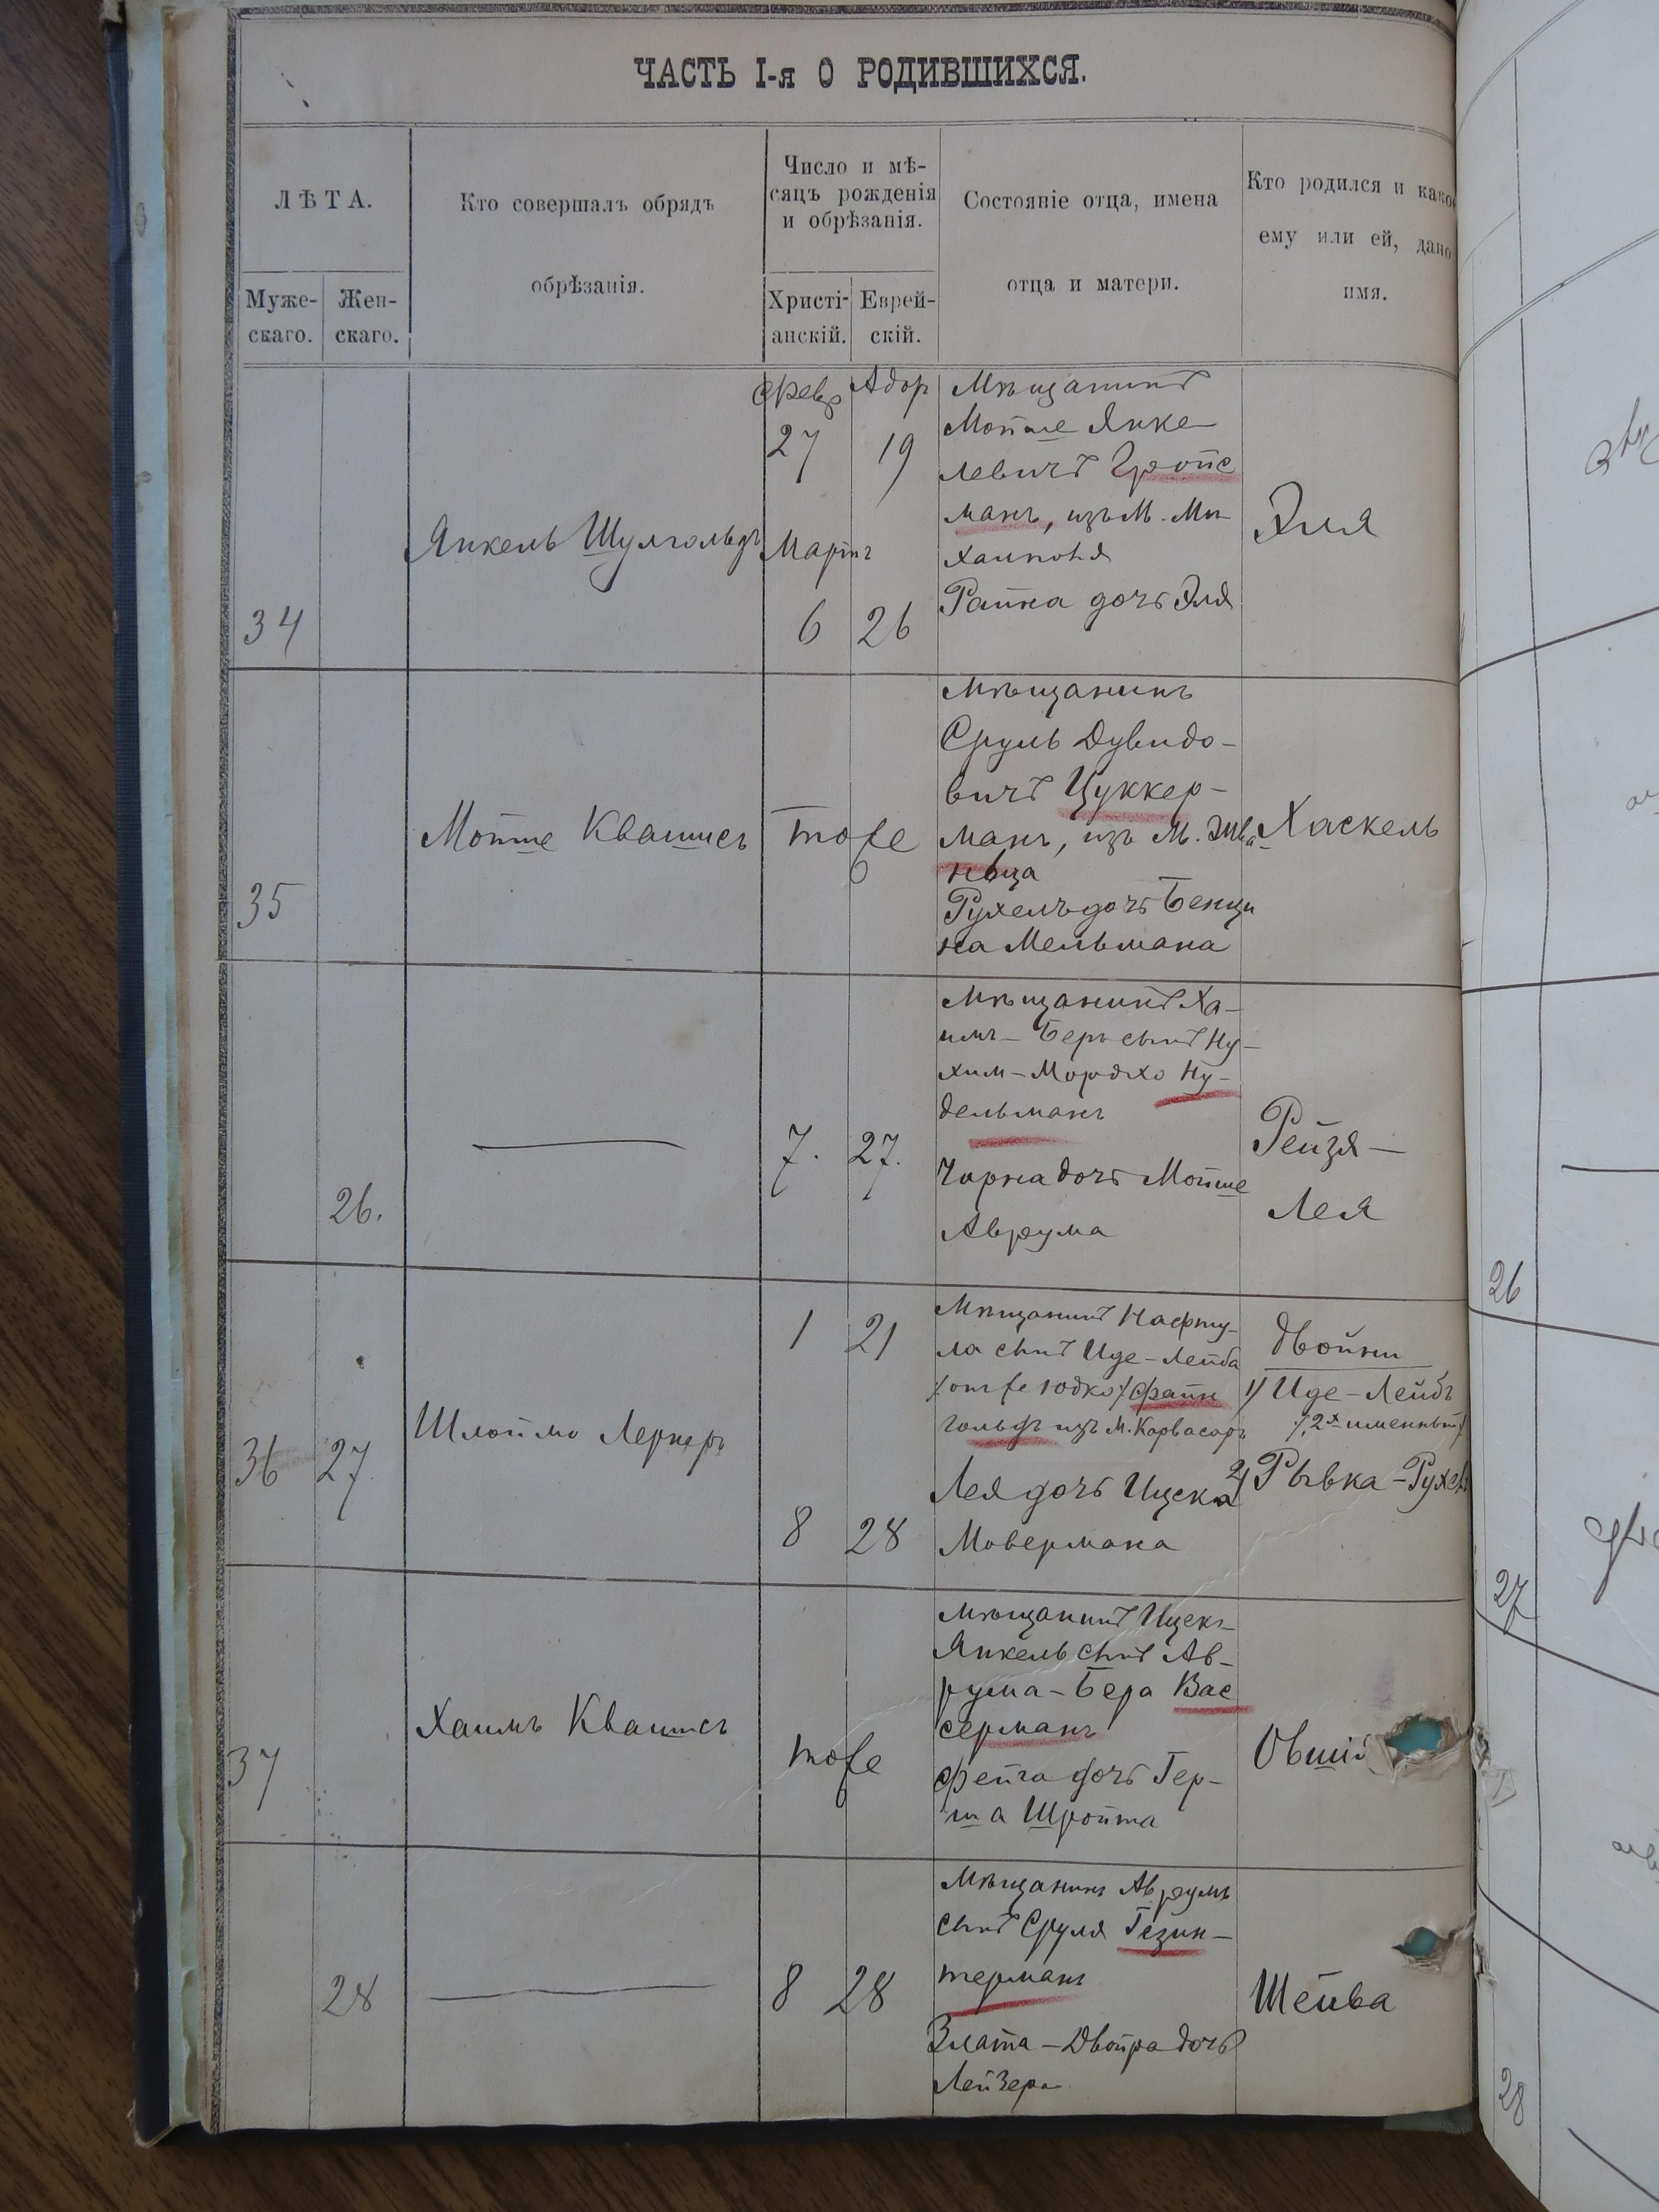 ЧАСТЬ I-я О РОДИВШИХСЯ.
ЛѢТА.
Муже-
скаго.
Жен-
скаго.
Кто совершалъ обрядъ
обрѣзанія.
Число и мѣ-
сяцъ рожденія
и обрѣзанія.
Христі-
анскій.
Еврей-
скій.
Состояніе отца, имена
отца и матери.
Кто родился и какое
ему или ей, дано
имя.
34
Янкель Шулгольдъ
Февр Адор
27 19
Мартъ
6 26
Мѣщанинъ
Мойше Янке
левичъ Гройс
манъ, изъ М. Ми
Райна дочь Эля
Эля
35
Мойше Квашисъ
тоже
Мѣщанинъ
Сруль Дувидо-
вичъ Цуккер-
манъ, изъ М. Жва-
нѣца
Рухель дочь Бенци
на Мельмана
Хаскель
26.
7. 27.
Мѣщанинъ Ха-
имъ-Беръ сынъ Ну-
хим-Мордхо Ну-
дельманъ
Чарна дочь Мойше
Аврума
Рейзя-
Лея
36 27
Шлоймо Лернеръ
1 21
8 28
Мѣщанинъ Нафту-
ла сынъ Иде-Лейба
/онже Юдко/ Файн
гольдъ изъ М. Карвасаръ
Лея дочь Ицека
Мовермана
Двойни
1/ Иде-Лейбъ
/2х именный/
2/ Рывка-Рухель
37
Хаимъ Квашисъ
тоже
Мѣщанинъ Ицекъ-
Янкель сынъ Ав-
рума-Бера Вас
серманъ
Фейга дочь Гер-
ша Шройта
Овшій
28
8 28
Мѣщанинъ Аврумъ
сынъ Сруля Гезин-
терманъ
Злата-Двойра дочь
Лейзера
Шейва
26
27
28